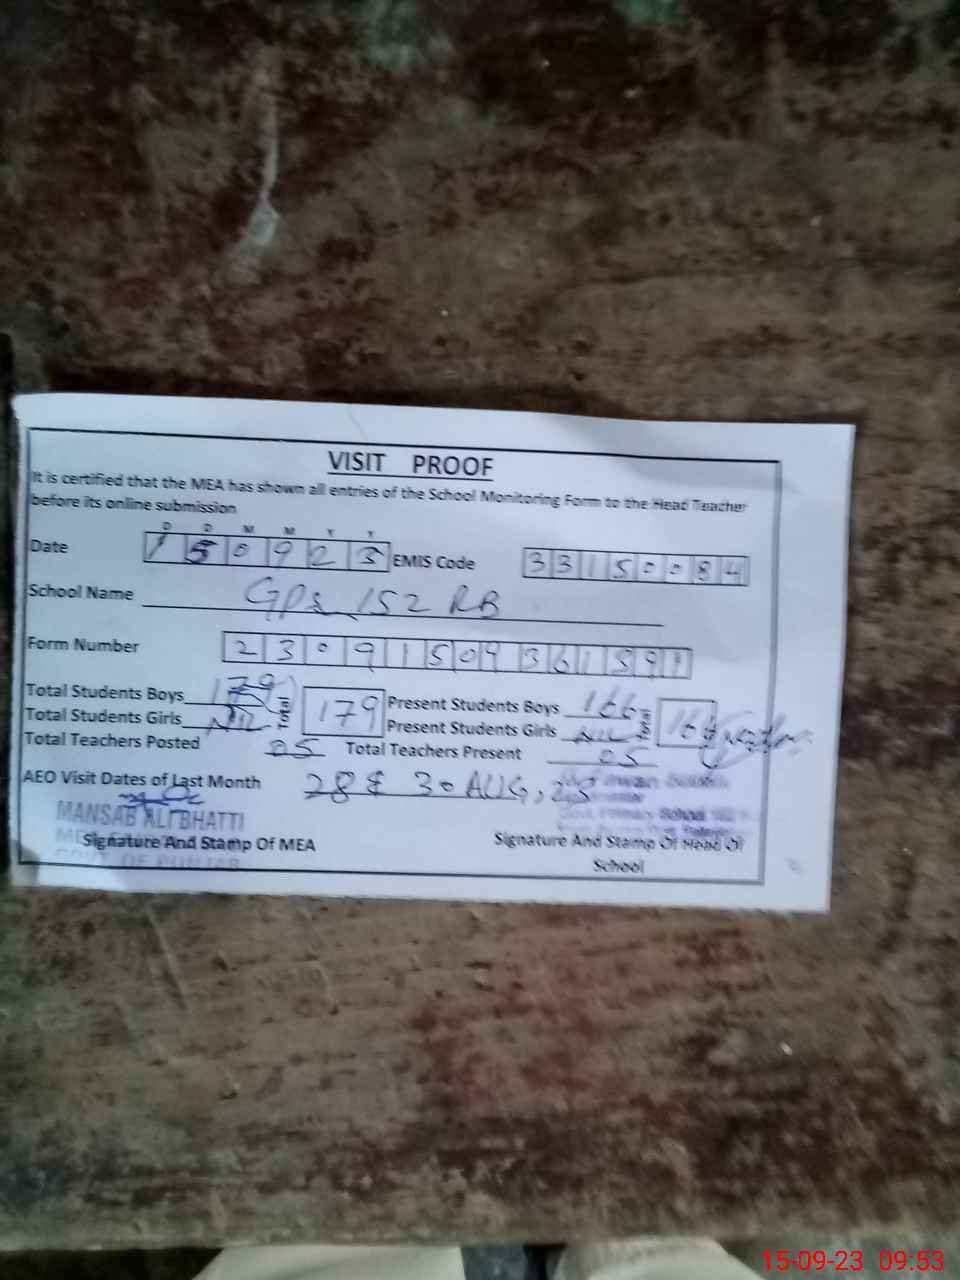 VISIT PROOF
It is certified that the MEA has shown all entries of the School Monitoring Form to the Head Teacher
before its online submission
D D M M Y Y
Date 1 5 0 9 2 3 EMIS Code 3 3 1 5 0 0 8 4
School Name GPS 152 RB
Form Number 2 3 0 9 1 5 0 9 3 6 1 5 9 1
Total Students Boys 179 179 Present Students Boys 166
Total Students Girls NIL Present Students Girls NIL
Total Teachers Posted 05 Total Teachers Present 05
AEO Visit Dates of Last Month 28 & 30 AUG, 23
MANSAB ALI BHATTI
Signature And Stamp Of MEA
GOVT. OF PUNJAB
Primary School
Signature And Stamp Of Head Of
School
15-09-23 09:53